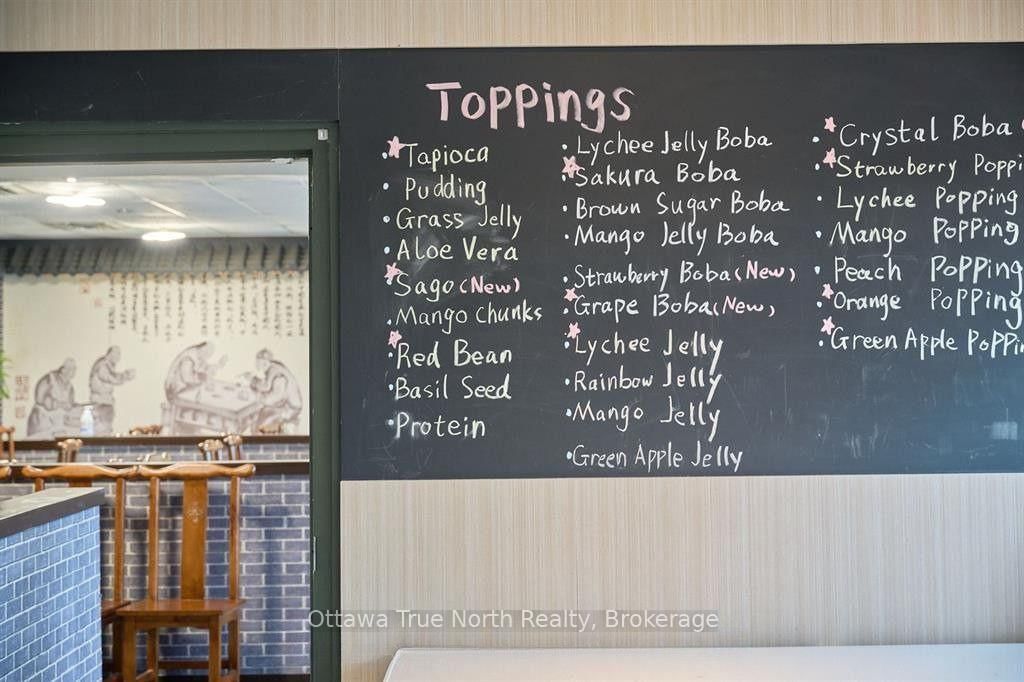 Toppings
Tapioca
Pudding
Grass Jelly
Aloe Vera
Sago (New)
Mango chunks
Red Bean
Basil Seed
Protein
Lychee Jelly Boba
Sakura Boba
Brown Sugar Boba
Mango Jelly Boba
Strawberry Boba (New)
Grape Boba (New)
Lychee Jelly
Rainbow Jelly
Mango Jelly
Green Apple Jelly
Crystal Boba
Strawberry Poppi
Lychee Popping
Mango Popping
Peach Popping
Orange Popping
Green Apple Poppin
Ottawa True North Realty, Brokerage